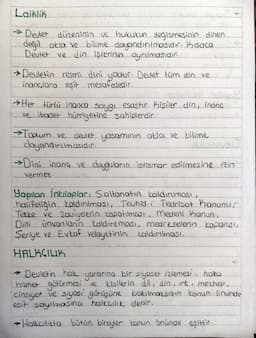 Laiklik
→ Devlet düzeninin ve hukukun değişmesinin dinen
değil akla ve bilime dayandırılmasıdır. Kısaca
Devlet ve din işlerinin ayrılmasıdır.
→ Devletin resmi dini yoktur. Devlet tüm din ve
inançlara eşit mesafededir.
→ Her türlü inanca saygı esastır. Kişiler din, inanç
ve ibadet hürriyetine sahiplerdir.
→ Toplum ve devlet yaşamının akla ve bilime
dayandırılmasıdır.
→ Dini inanç ve duyguların istismar edilmesine izin
vermez.
Yapılan İnkılaplar: Saltanatın kaldırılması,
halifeliğin kaldırılması, Tevhid-i Tedrisat Kanunu,
Tekke ve Zaviyelerin kapatılması, Medeni Kanun,
Dini ünvanların kaldırılması, medreselerin kapandı,
Şeriye ve Evkaf Vekaletinin kaldırılması.
HALKÇILIK
→ Devletin halk yararına bir siyaset izlemesi, halka
hizmet götürmesi ve kişilerin dil, din, ırk, mezhep,
cinsiyet ve siyasi görüşüne bakılmaksızın kanun önünde
eşit sayılmasına halkçılık denir.
→ Halkçılıkta bütün bireyler kanun önünde eşittir.